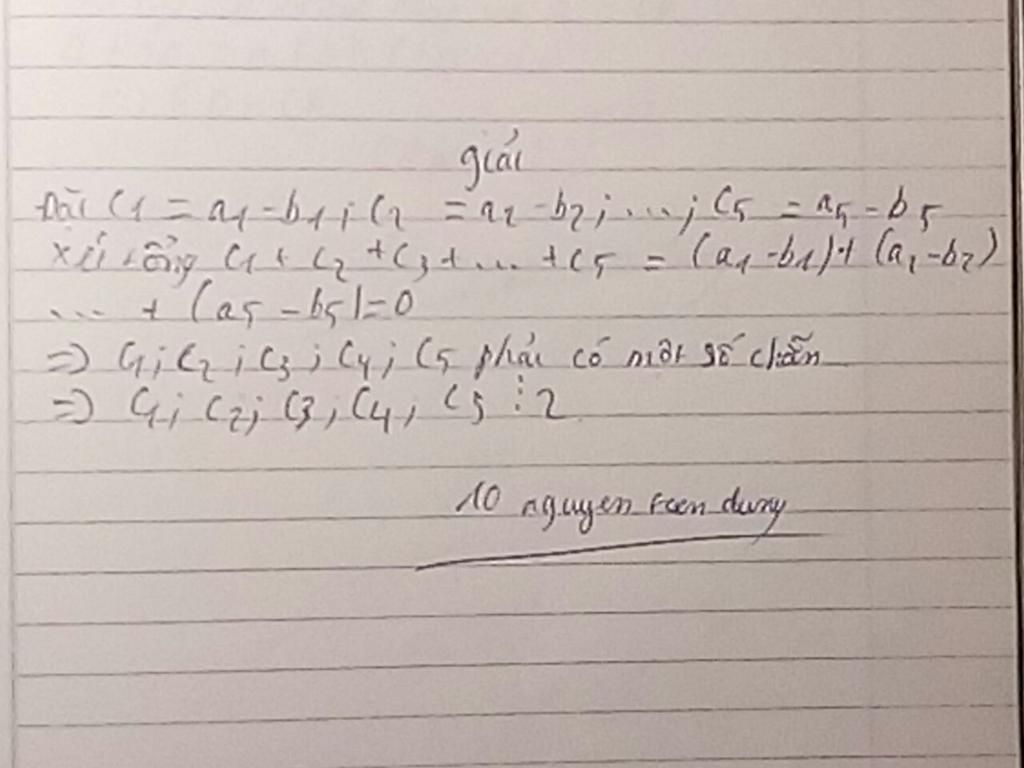 giải
Đặt C1 = a1 - b1; C2 = a2 - b2; ...; C5 = a5 - b5
xét tổng C1 + C2 + C3 + ... + C5 = (a1 - b1) + (a2 - b2)
... + (a5 - b5) = 0
=> C1; C2; C3; C4; C5 phải có một số chẵn
=> C1; C2; C3; C4; C5 ⋮ 2
10 nguyen dung